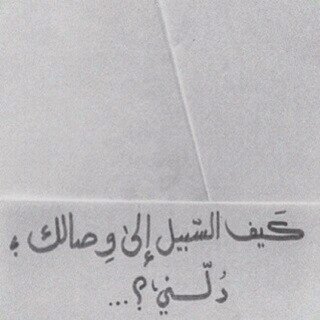 كَيف السّبيل إلىٰ وِصالك ؛
دُلّني ؟ ...